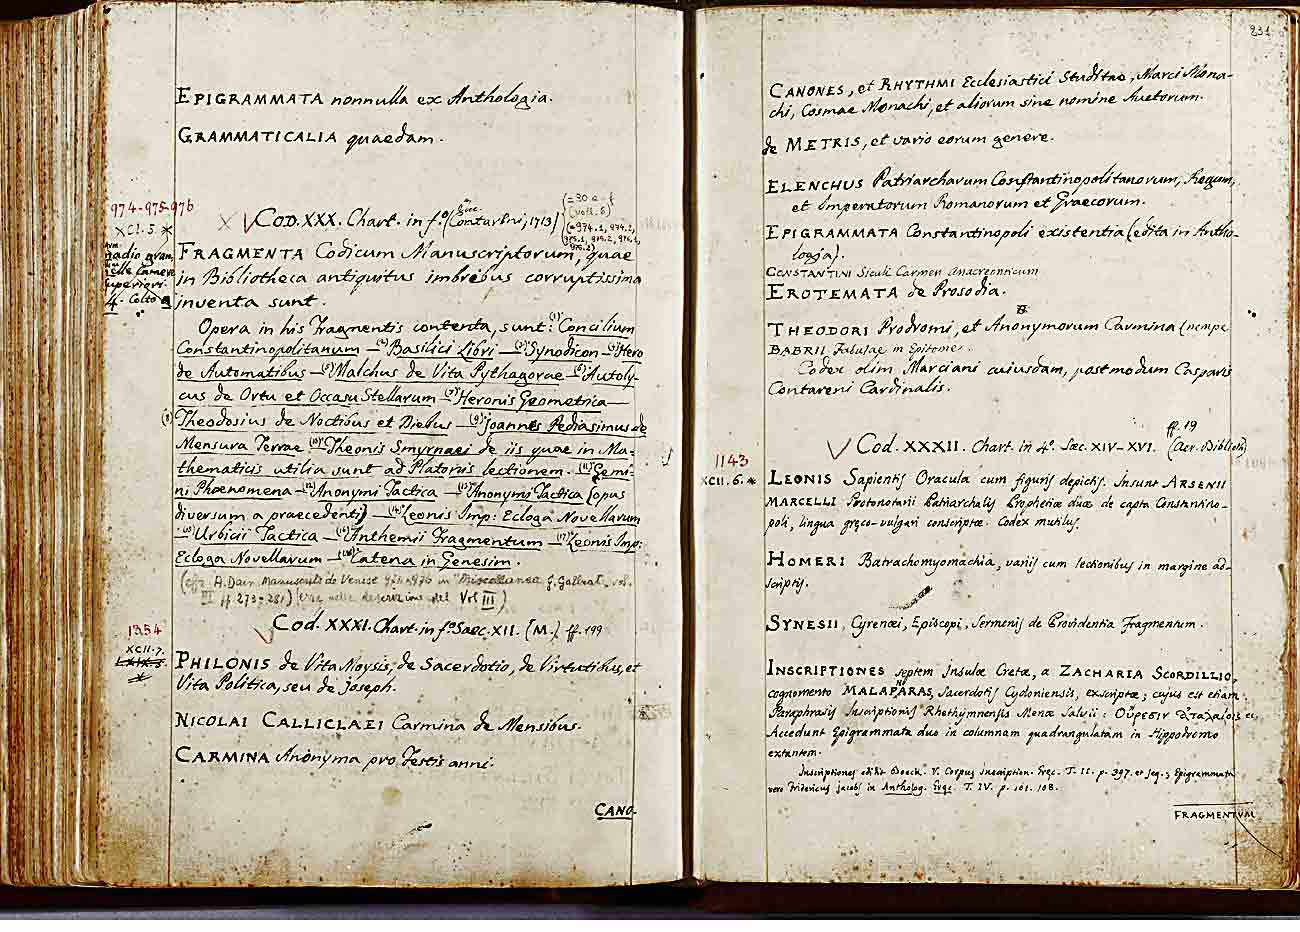 EPIGRAMMATA nonnulla ex Anthologia.
GRAMMATICALIA quaedam.
974-975-976
XCI. 5. *
COD. XXX. Chart. in f.º (Contareni, 1713)
(=974.1, 974.2,
975.1, 975.2, 976.1,
976.2)
FRAGMENTA Codicum Manuscriptorum, quae
in Bibliotheca antiquitus imbribus corruptissima
inventa sunt.
Opera in his Fragmentis contenta, sunt: (1) Concilium
Constantinopolitanum — (2) Basilici Libri — (3) Synodicon — (4) Hero
de Automatibus — (5) Malchus de Vita Pythagorae — (6) Autoly-
cus de Ortu et Occasu Stellarum — (7) Heronis Geometrica —
(8) Theodosius de Noctibus et Diebus — (9) Joannes Pediasimus de
Mensura Terrae — (10) Theonis Smyrnaei de iis quae in Ma-
thematicis utilia sunt ad Platonis lectionem. (11) Gemi-
ni Phoenomena — (12) Anonymi Tactica — (13) Anonymi Tactica (opus
diversum a praecedenti) — (14) Leonis Imp: Ecloga Novellarum
— (15) Urbicii Tactica — (16) Anthemii Fragmentum — (17) Leonis Imp:
Ecloga Novellarum — (18) Catena in Genesim.
(cfr. A. Dain, Manuscrits de Venise 974-976 in "Miscellanea G. Galbiati, vol.
III ff 273-281) Vol III)
1354
XCII. 7.
Cod. XXXI. Chart. in f.º Saec. XII. (M.) ff. 199
PHILONIS de Vita Moysis, de Sacerdotio, de Virtutibus, et
Vita Politica, seu de Joseph.
NICOLAI CALLICLAEI Carmina de Mensibus.
CARMINA Anonyma pro Festis anni.
CANO-
231
CANONES, et RHYTHMI Ecclesiastici Studitae, Marci Mona-
chi, Cosmae Monachi, et aliorum sine nomine Auctorum.
de METRIS, et vario eorum genere.
ELENCHUS Patriarcharum Constantinopolitanorum, Regum,
et Imperatorum Romanorum et Graecorum.
EPIGRAMMATA Constantinopoli existentia (edita in Antho-
logia).
CONSTANTINI Siculi Carmen Anacreonticum
EROTEMATA de Prosodia.
THEODORI Prodromi, et Anonymorum Carmina (nempe
BABRII Fabulae in Epitome.
Codex olim Marciani cuiusdam, postmodum Casparis
Contareni Cardinalis.
1143
XCII. 6. *
Cod. XXXII. Chart. in 4º. Sæc. XIV-XVI. ff. 19
LEONIS Sapientis Oracula cum figuris depictis. Insunt ARSENII
MARCELLI Protonotarii Patriarchalis Prophetiæ duæ de capta Constantino-
poli, lingua græco-vulgari conscriptæ. Codex mutilus.
HOMERI Batrachomyomachia, variis cum lectionibus in margine ad-
scriptis.
SYNESII, Cyrenæi, Episcopi, Sermonis de Providentia Fragmentum.
INSCRIPTIONES septem Insulæ Cretæ, a ZACHARIA SCORDILLIO,
cognomento MALAPARAS, Sacerdotis Cydoniensis, exscriptæ; cujus est etiam
Paraphrasis Inscriptionis Rhethymnensis Menæ Salvii:
Accedunt Epigrammata duo in columnam quadrangulatam in Hippodromo
extantem.
Inscriptiones edidit Boeck. V. Corpus Inscription. Græc. T. II. p. 397. et seq.; Epigrammata
vero Fridericus Jacobs in Antholog. Græc. T. IV. p. 101. 108.
FRAGMENTUM